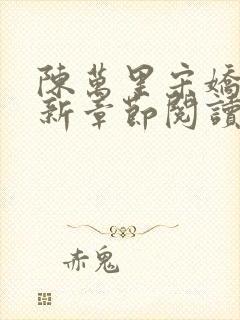 陳萬里宋嬌
新章節閱讀
赤鬼